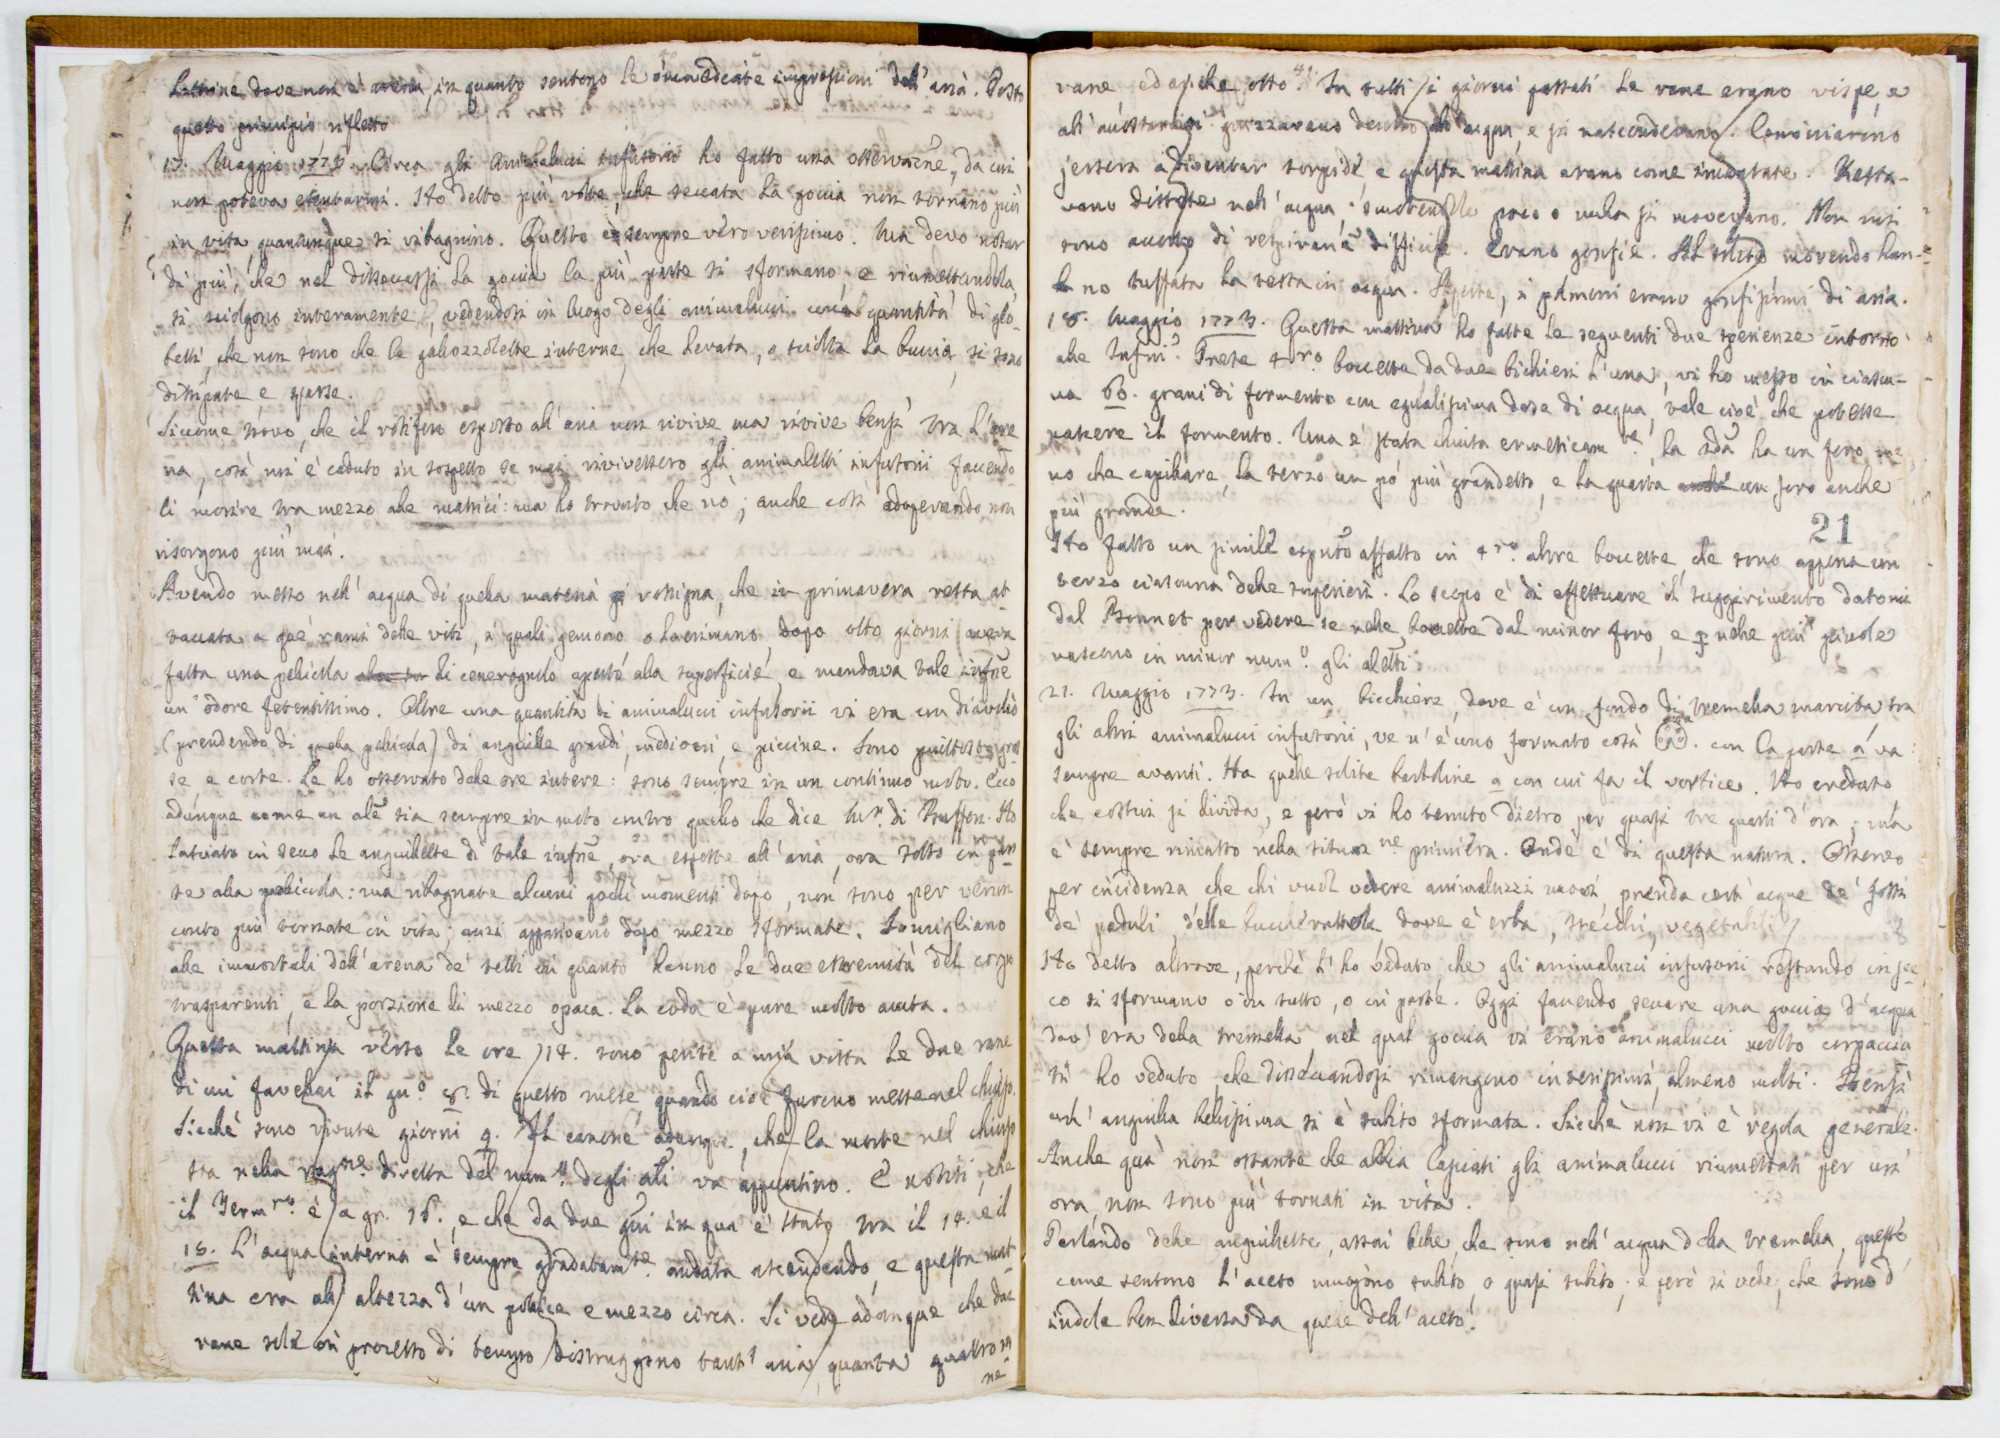 40
dove non è arena, in quanto sentono le immediate impressioni dell' aria. Posto
questo principio rifletto
17. Maggio 1773. Circa gli Animalucci infusorii ho fatto una osservazne, da cui
non poteva esentarmi. Ho detto più volte, che seccata la goccia non tornano più
in vita quantunque si ribagnino. Questo è sempre vero verissimo. Ma devo notar
di più, che nel disseccarsi la goccia la più parte si sformano, e riumettandola,
si sciolgono interamente, vedendosi in luogo degli animalucci una quantità di glo-
betti, che non sono che le gallozzolette interne, che levata, o sciolta la buccia, si sono
dissipate e sparse.
Siccome trovo, che il rotifero esposto all' aria non rivive ma rivive bensì tra l' are
na, così mi è caduto in sospetto se mai rivivessero gli animaletti infusorii facendo-
li morire tra mezzo alle matrici: ma ho trovato che nò; anche così adoperando non
risorgono più mai.
Avendo messo nell' acqua di quella materia rossigna, che in primavera resta at-
taccata a que' rami delle viti, i quali gemono, o lacrimano, dopo otto giorni aveva
fatta una pellicola di cenerognolo aspetto alla superficie, e mandava tale infne
un' odore fetentissimo. Oltre una quantità di animalucci infusorii vi era un diavolìo
(prendendo di quella pellicola) di anguille grandi, mediocri, e piccine. Sono piuttosto gros
se, e corte. Le ho osservato delle ore intere: sono sempre in un continuo moto. Ecco
adunque come un ale sia sempre in moto contro quello che dice Mr. di Buffon. Ho
lasciato in secco le anguillette di tale infne, ora esposte all' aria, ora sotto
te alla pellicola: ma ribagnate alcuni pochi momenti dopo, non sono per verun
conto più tornate in vita; anzi apparivano dopo mezzo sformate. Somigliano
alle immortali dell' arena de' tetti in quanto hanno le due estremità del corpo
trasparenti, e la porzione di mezzo opaca. La coda è pure molto acuta.
Questa mattina verso le ore 14. sono perite a mia vista le due rane
di cui favellai il gno 8. di questo mese, quando cioè furono messe nel chiuso.
Sicchè sono vivute giorni 9. Il canone adunque, che la morte nel chiuso
sta nella ragne diretta del numo degli ali va appuntino. È notisi, che
il Termro è a gr. 16., e che da due gni in qua è stato tra il 14. e il
18. L' acqua interna è sempre gradatamte andata ascendendo, e questa mat-
tina era all' altezza d' un pollice e mezzo circa. Si vede adunque che due
rane sole in processo di tempo distruggono tant' aria, quanta quattro ra
ne
41.
rane ed anche otto. In tutti i giorni passati le rane erano vispe, e
all' guizzavano dentro all' acqua, e si nascondevano. Cominciarono
jersera a diventar torpide, e questa mattina erano come incantate. Resta-
vano distese nell' acqua; smovendole poco o nulla si movevano. Non mi
sono accorto di respirane difficile. Erano gonfie. Al solito morendo han-
no tuffata la testa in acqua. Aperte, i polmoni erano gonfissimi di aria.
18. Maggio 1773. Questa mattina ho fatte le seguenti due sperienze intorno
alle Infni. Prese 4ro boccette da due bichieri l' una, vi ho messo in ciascu-
na 60. grani di formento con egualissima dose di acqua, tale cioè che potesse
nascere il formento. Una è stata chiusa ermeticamte, la 2da ha un foro me
no che capillare, la terza un pò più grandetto, e la quarta un foro anche
più grande.
21
Ho fatto un simile espmto affatto in 4ro altre boccette che sono appena un
terzo ciascuna delle superiori. Lo scopo è di effettuare il suggerimento datomi
dal Bonnet per vedere se nelle boccette dal minor foro, e p nelle più picciole
nascono in minor numo gli aletti.
21. Maggio 1773. In un bicchiere, dove è un fondo di tremella marcita tra
gli altri animalucci infusorii, ve n' è uno formato così. con la parte a va
sempre avanti. Ha quelle solite bertoline a con cui fa il vortice. Ho creduto
che costui si divida, e però vi ho tenuto dietro per quasi tre quarti d' ora; ma
è sempre rimasto nella situazne primiera. Onde è di questa natura. Osservo
per incidenza che chi vuol vedere animaluzzi nuovi, prenda certe acque de' fossi
de' paduli, delle dove è erba, stecchi, vegetabili
Ho detto altrove, perchè l' ho veduto che gli animalucci infusorii restando in sec
co si sformano o in tutto, o in parte. Oggi facendo seccare una goccia d' acqua
dov' era della tremella nel qual gocca vi erano animalucci molto corpacciuti
si ho veduto, che disseccandosi rimangono interissimi, almeno molti. Bensì
un' anguilla bellissima si è subito sformata. Sicchè non vi è regola generale.
Anche quà non ostante che abbia lasciati gli animalucci riumettati per un'
ora, non sono più tornati in vita.
Parlando delle anguillette, assai belle, che sono nell' acqua della tremella, queste
come sentono l' aceto muojono subito, o quasi subito; e però si vede, che sono d'
indole ben diversa da quelle dell' aceto.